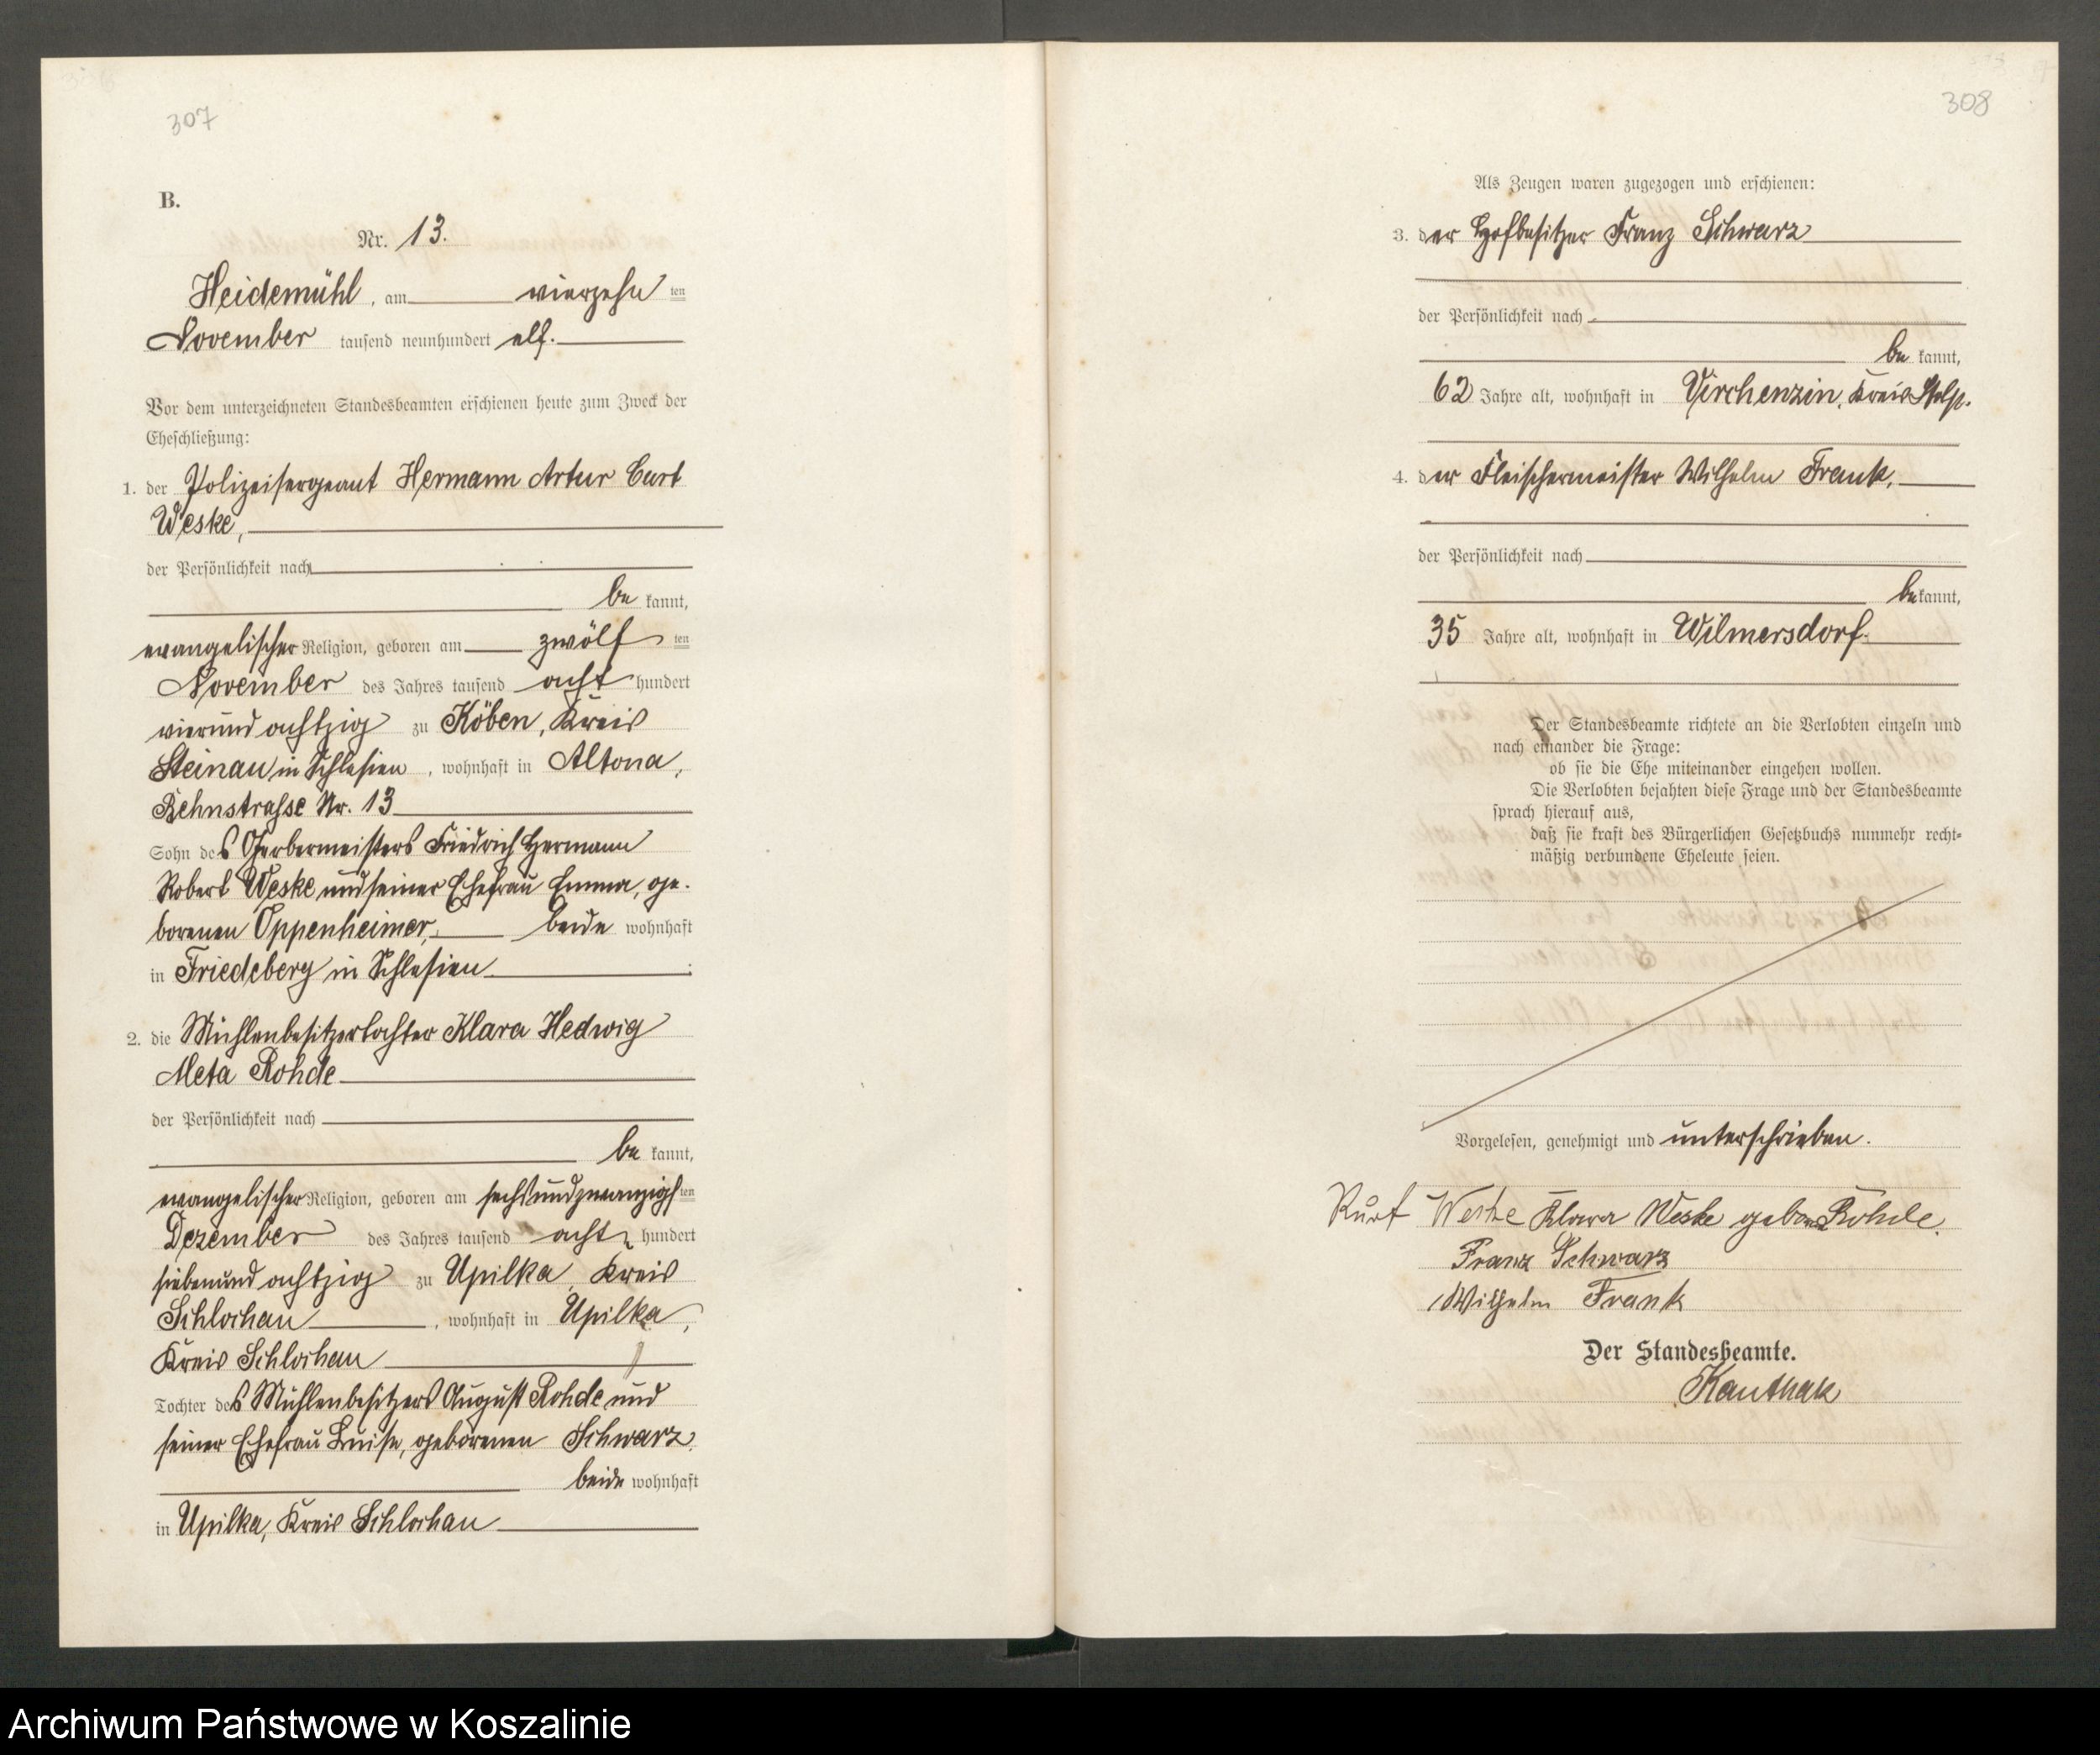 307
B.
Nr. 13.
Heidemühl, am vierzehnten
November tausend neunhundert elf.
Vor dem unterzeichneten Standesbeamten erschienen heute zum Zweck der
Eheschließung:
1. der Polizeisergeant Hermann Artur Curt
Weske,
der Persönlichkeit nach
bekannt,
evangelischer Religion, geboren am zwölften
November des Jahres tausend achthundert
vierundachtzig zu Köben, Kreis
Steinau in Schlesien, wohnhaft in Altona,
Behnstrasse Nr. 13
Sohn des Gerbermeisters Friedrich Hermann
Robert Weske und seiner Ehefrau Emma, ge-
borenen Oppenheimer, beide wohnhaft
in Friedeberg in Schlesien.
2. die Mühlenbesitzertochter Klara Hedwig
Meta Rohde
der Persönlichkeit nach
bekannt,
evangelischer Religion, geboren am sechsundzwanzigsten
Dezember des Jahres tausend achthundert
siebenundachtzig zu Upilka, Kreis
Schlochau, wohnhaft in Upilka,
Kreis Schlochau
Tochter des Mühlenbesitzers August Rohde und
seiner Ehefrau Luise, geborenen Schwarz
beide wohnhaft
in Upilka, Kreis Schlochau
308
Als Zeugen waren zugezogen und erschienen:
3. der Hofbesitzer Franz Schwarz
der Persönlichkeit nach
bekannt,
62 Jahre alt, wohnhaft in Virchenzin, Kreis Stolp.
4. der Fleischermeister Wilhelm Frank,
der Persönlichkeit nach
bekannt,
35 Jahre alt, wohnhaft in Wilmersdorf.
Der Standesbeamte richtete an die Verlobten einzeln und
nach einander die Frage:
ob sie die Ehe miteinander eingehen wollen.
Die Verlobten bejahten diese Frage und der Standesbeamte
sprach hierauf aus,
daß sie kraft des Bürgerlichen Gesetzbuchs nunmehr recht-
mäßig verbundene Eheleute seien.
Vorgelesen, genehmigt und unterschrieben.
Kurt Weske Klara Weske geboren Rohde.
Franz Schwarz
Wilhelm Frank
Der Standesbeamte.
Kauthak
Archiwum Państwowe w Koszalinie